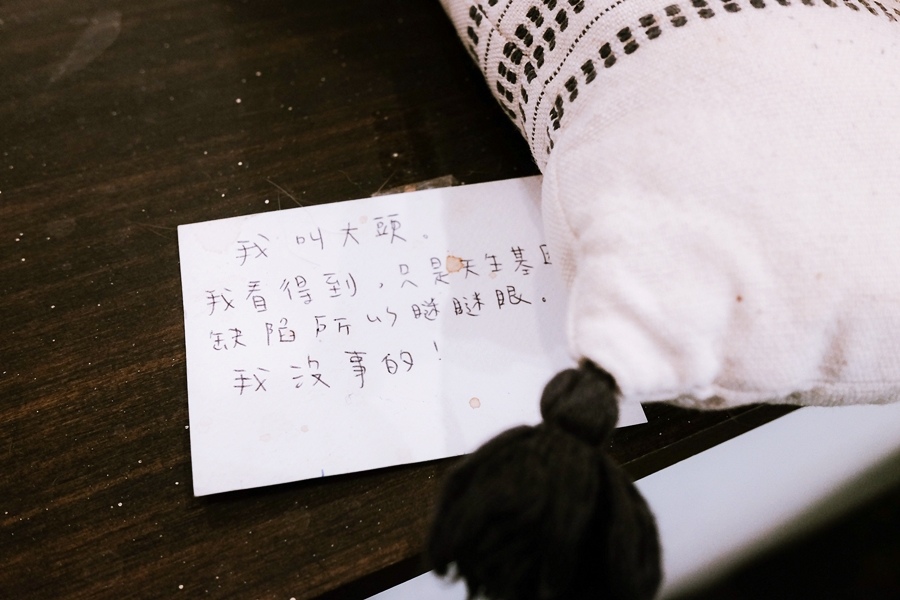 我叫大頭。
我看得到，只是天生基因
缺陷所以瞇瞇眼。
我沒事的！